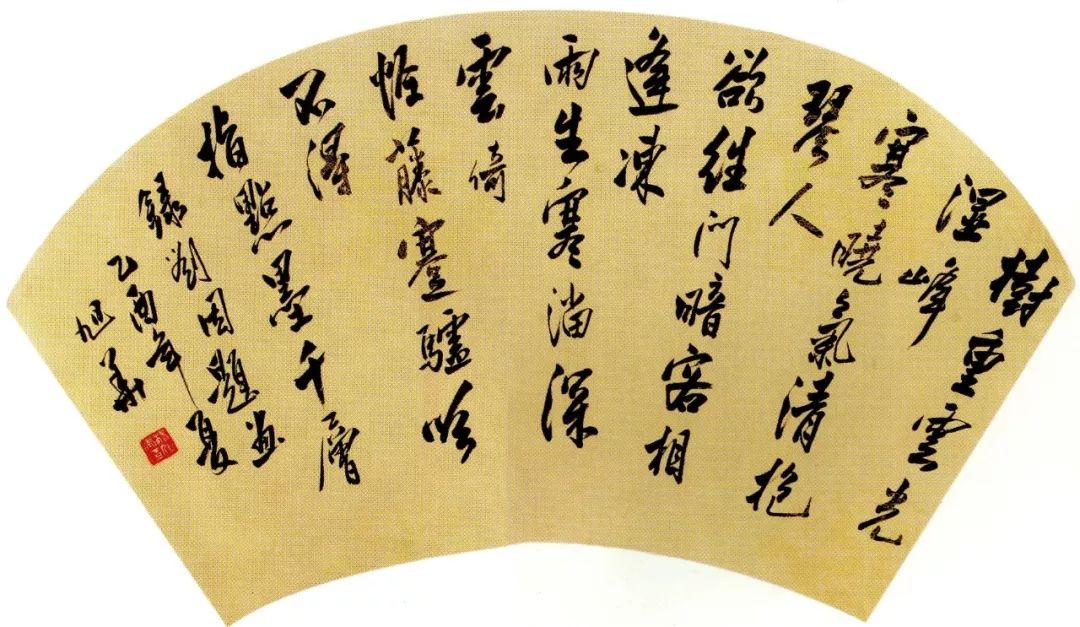 樹重雲光
濕峰
寒曉氣清抱
琴人
欲往門暗客相
逢凍
雨生寒溜深
雲倚
怪藤蹇驢吟
不得
指點墨千層
錄劉因題畫
乙酉年夏
旭華